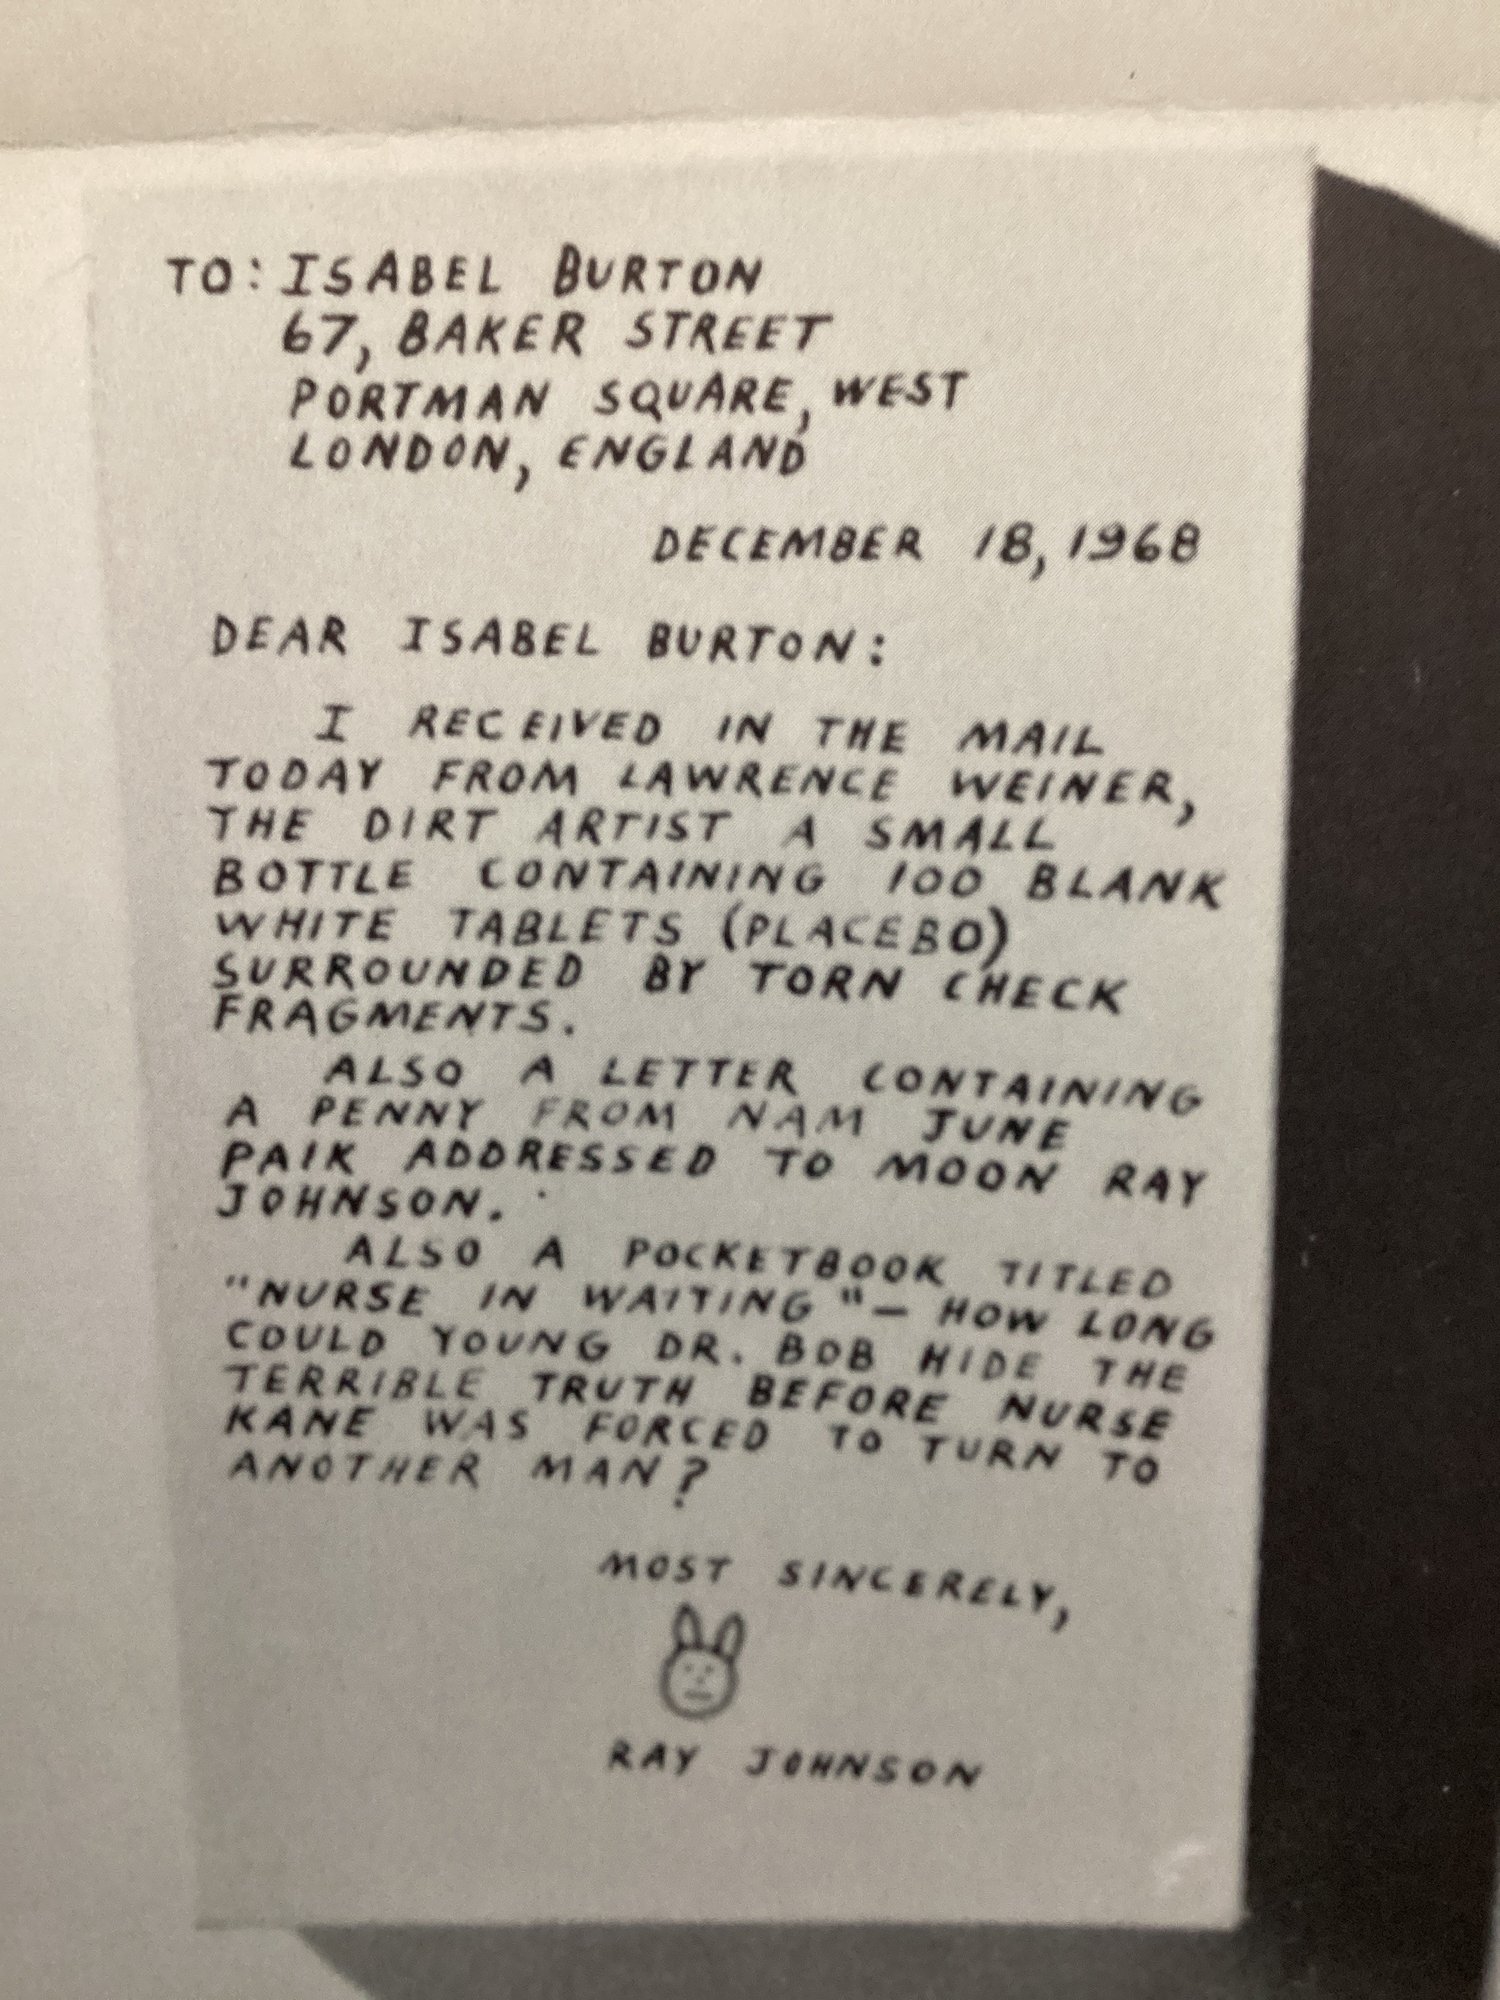 TO: ISABEL BURTON
67, BAKER STREET
PORTMAN SQUARE, WEST
LONDON, ENGLAND
DECEMBER 18, 1968
DEAR ISABEL BURTON:
I RECEIVED IN THE MAIL
TODAY FROM LAWRENCE WEINER,
THE DIRT ARTIST A SMALL
BOTTLE CONTAINING 100 BLANK
WHITE TABLETS (PLACEBO)
SURROUNDED BY TORN CHECK
FRAGMENTS.
ALSO A LETTER CONTAINING
A PENNY FROM NAM JUNE
PAIK ADDRESSED TO MOON RAY
JOHNSON.
ALSO A POCKETBOOK TITLED
"NURSE IN WAITING" — HOW LONG
COULD YOUNG DR. BOB HIDE THE
TERRIBLE TRUTH BEFORE NURSE
KANE WAS FORCED TO TURN TO
ANOTHER MAN?
MOST SINCERELY,
RAY JOHNSON